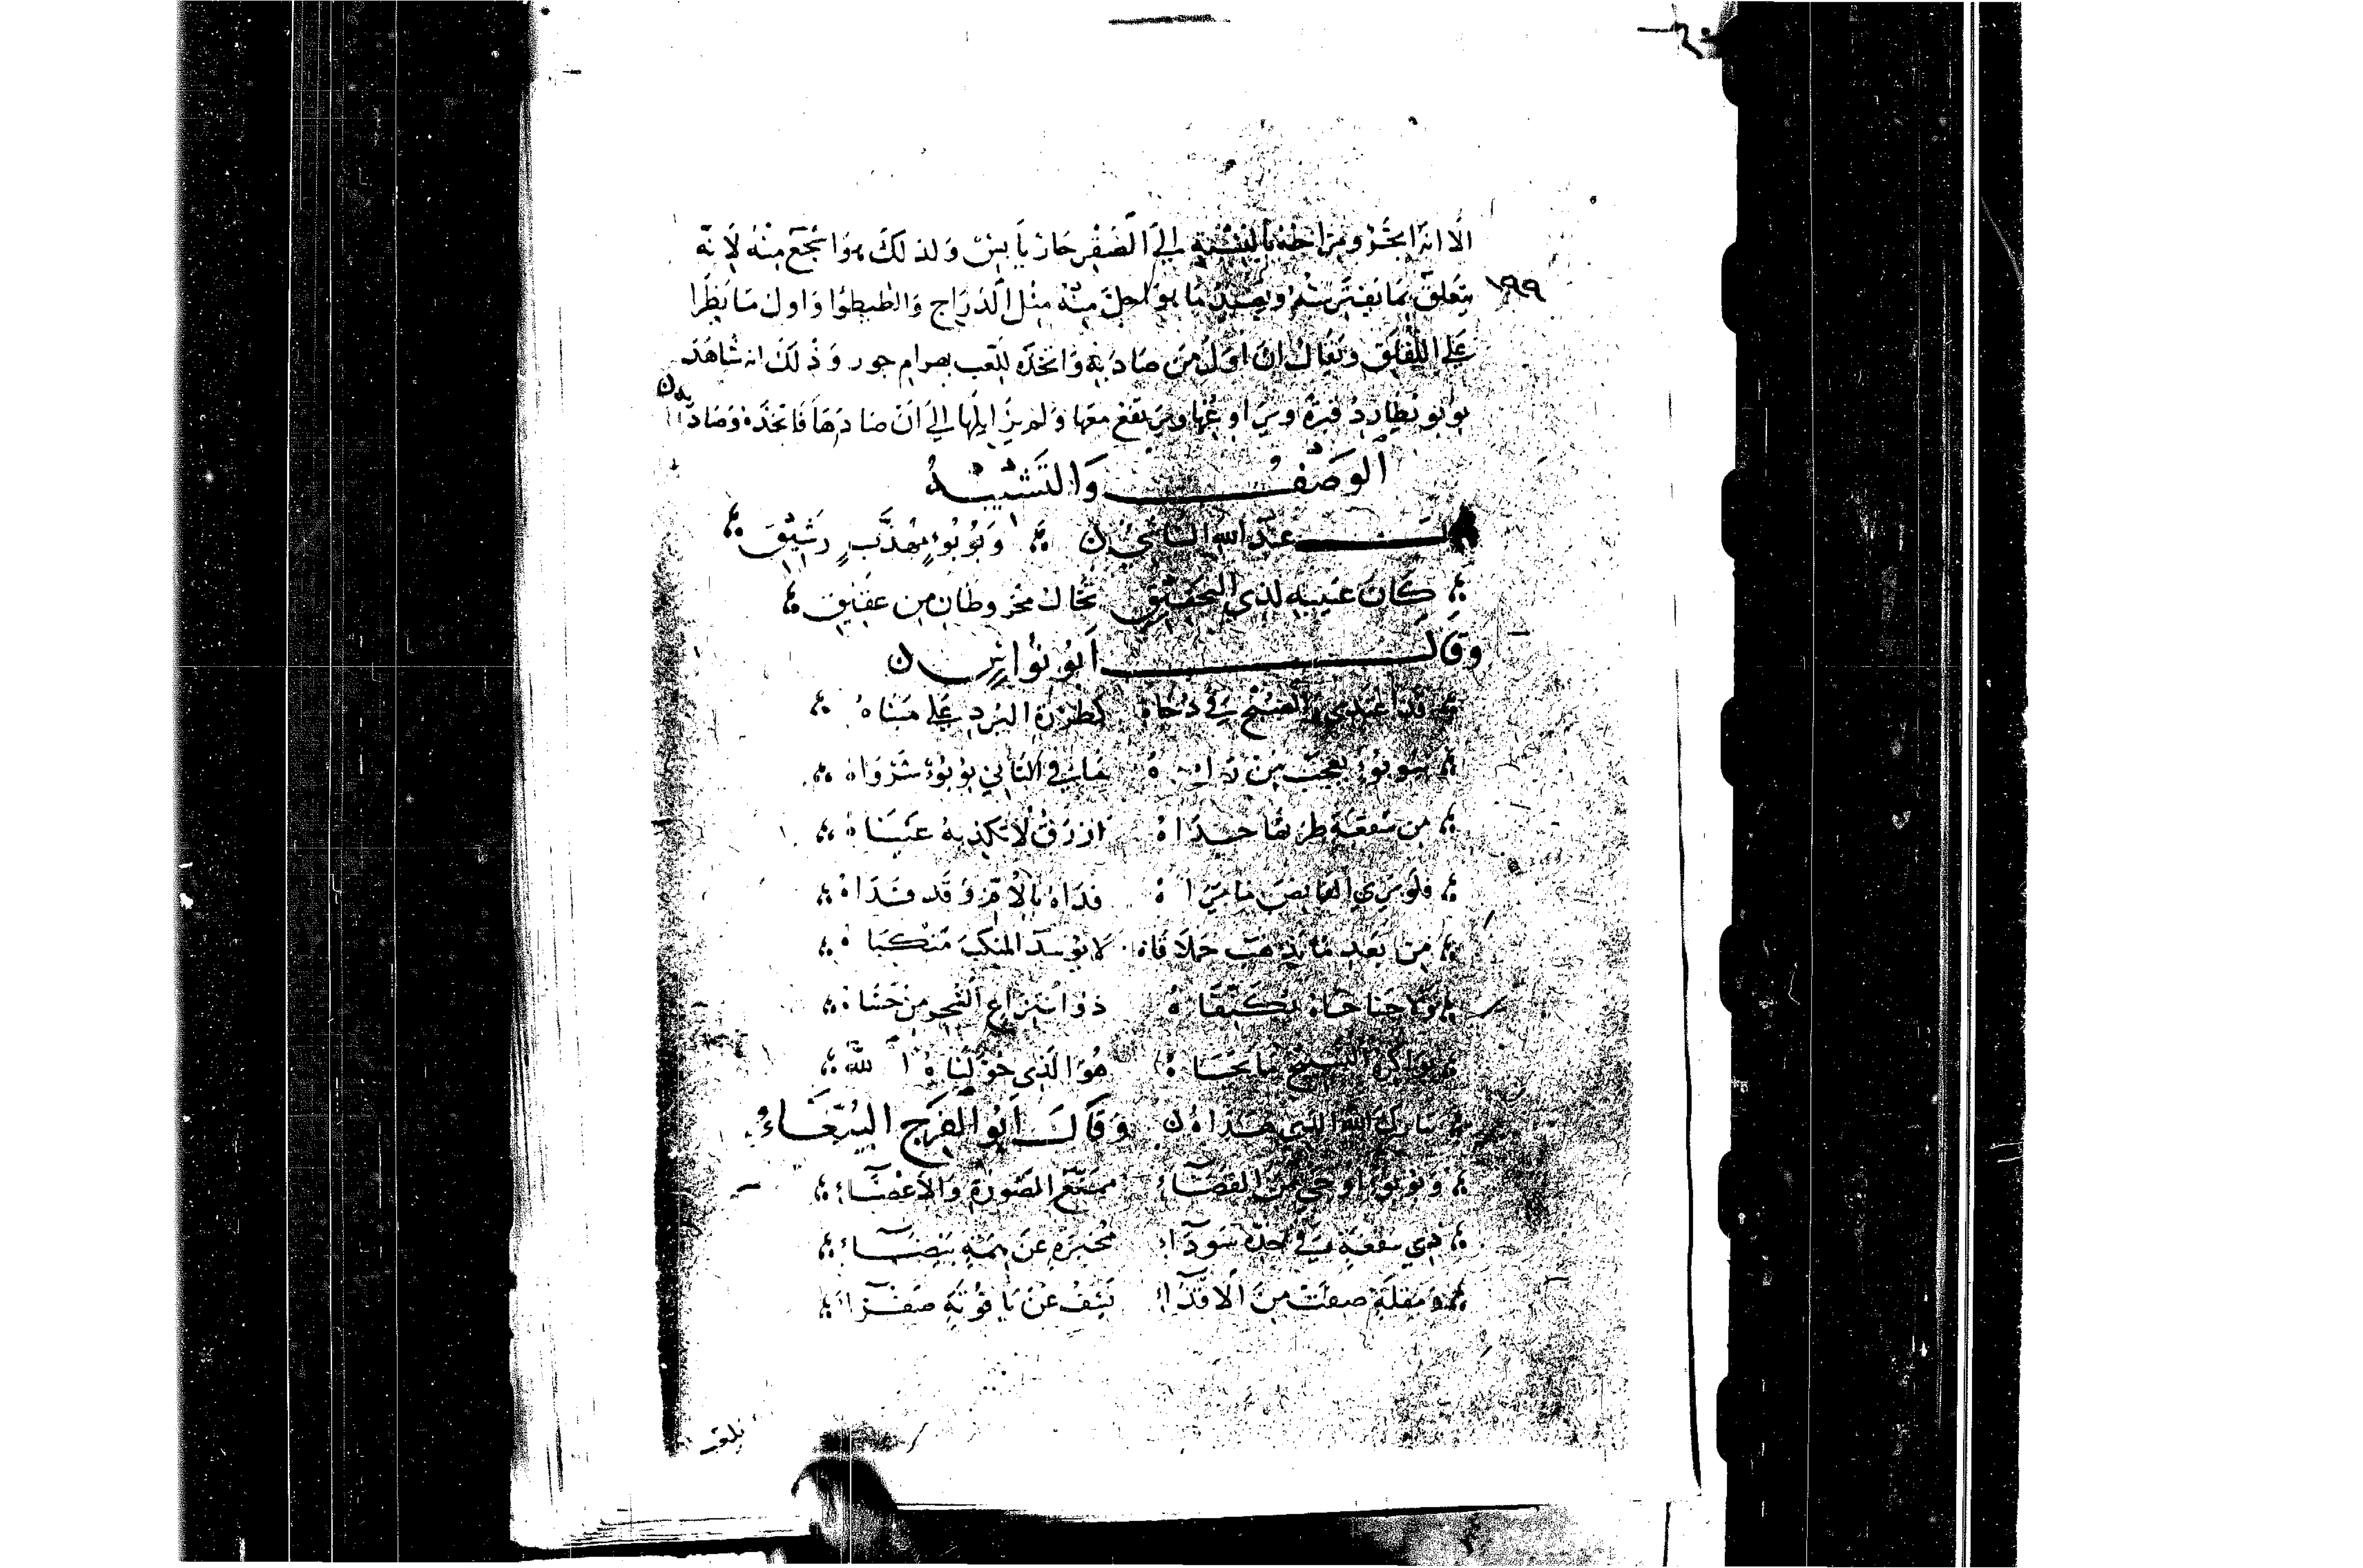 الا انه اجزو ومزاجه بالنسبة الي الصقر حار يابس ولذلك هو اشجع منه لانه
١٩٩
يتعلق بما يفترسه ويصيد ما هو اجل منه مثل الدراج والطيطوا واول ما يظرا
علي اللقلق ويقال ان اول من صاد به واتخذه للعب بهرام جور وذلك انه شاهد
يويو يطارد قبرة ويراوغها ويرتفع معها ولم يزايلها الي ان صادها فاتخذه وصاد
به ن
الوصف والتشبيه
قال عبد الله الناشي ن ويويو مهذب رشيق
كان عينيه لذي التحقيق تخال مخروطان من عقيق
وقال ابو نواس ن
قد اغتدي والصبح في دجاه كطرة البرد علي مثناه
بيويو يعجب من رآه ما في اليآيي يويو شرواه
من سفعة طر بها خداه ازرق لا تكذبه عيناه
فلو يري القانص ما يراه فداه بالام وقد فداه
من بعد ما تذهب حملاقاه لا يوسد المنكب منكباه
ولا جناحاه تكنفاه ذو انتزاع
هو الذي خولناه الله
تبارك الله الذي هداه ن وقال ابو الفرج الببغاء
ويويو اوحي من القضاء ممتع الصورة والاعضاء
ذي سفعة في خده سوداء مخبرة عن همة بيضاء
ومقلة صفت من الاقذاء تشف عن ياقوتة صفراء